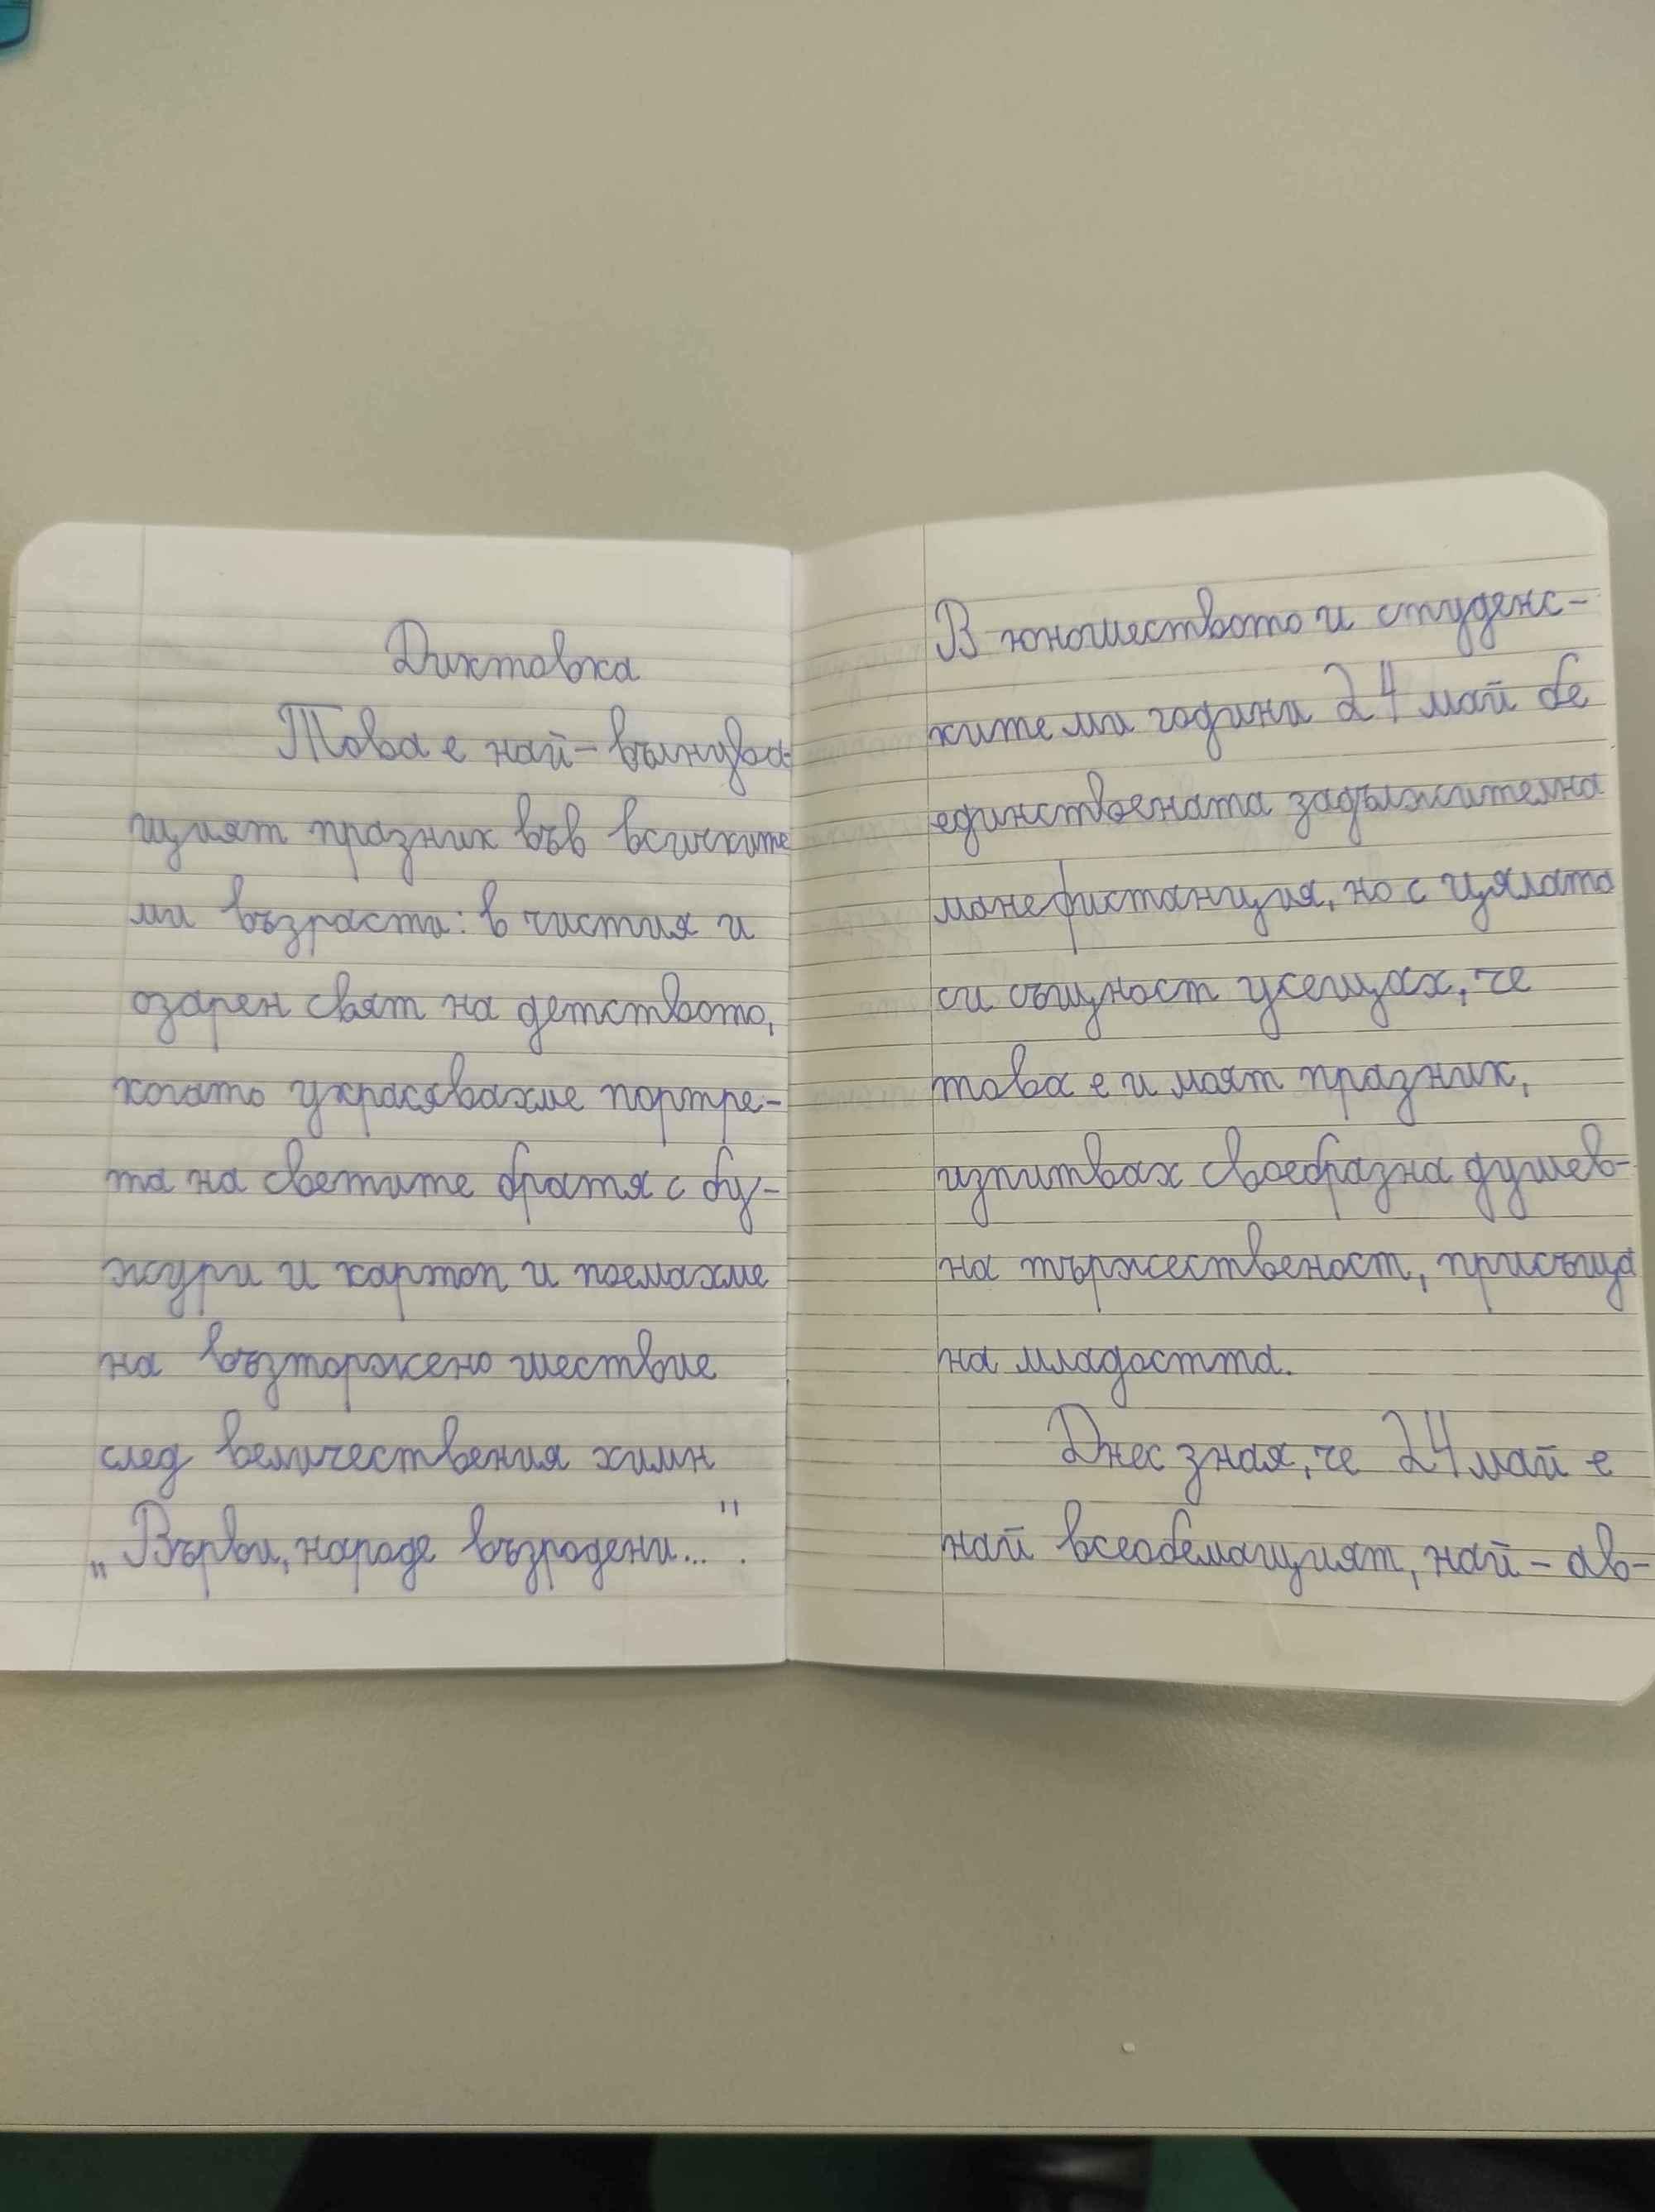 Диктовка
Това е най-вълнува-
щият празник във всичките
ми възрасти: в чистия и
озарен свят на детството,
когато украсявахме портре-
та на светите братя с бу-
жури и картоп и поемахме
на възторжено шествие
след величествения химн
„Върви, народе възродени...".
В юношеството и студенс-
ките ми години 24 май бе
единствената задължителна
манефистанция, но с цялата
си същност усещах, че
това е и моят празник,
изпитвах своебразна душев-
на тържественост, присъща
на младостта.
Днес зная, че 24 май е
най всеобемащият, най-ав-